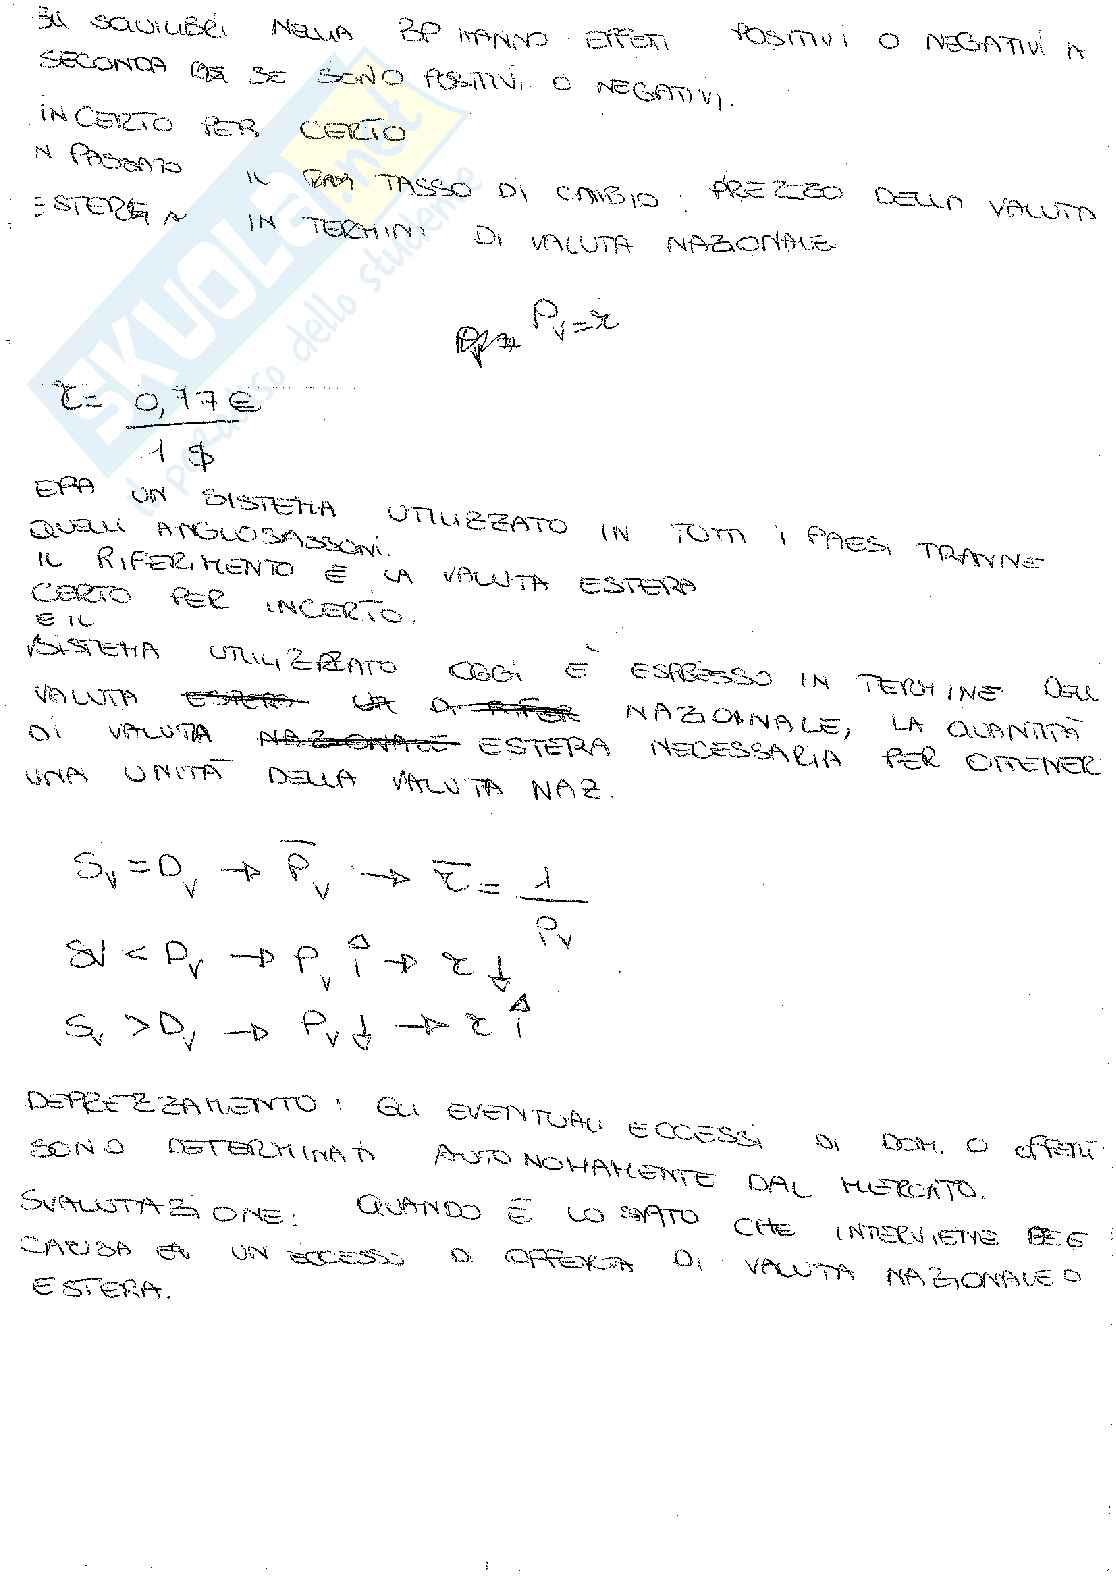 SQUILIBRI NELLA BP HANNO EFFETI POSITIVI O NEGATIVI A
SECONDA SE SONO POSITIVI O NEGATIVI.
INCERTO PER CERTO
N PASSATO IL TASSO DI CAMBIO: PREZZO DELLA VALUTA
ESTERA IN TERMINI DI VALUTA NAZIONALE
Pv = r
r = 0,77 €
1 $
ERA UN SISTEMA UTILIZZATO IN TUTTI I PAESI TRANNE
QUELLI ANGLOSASSONI.
IL RIFERIMENTO È LA VALUTA ESTERA
CERTO PER INCERTO.
E IL
SISTEMA UTILIZZATO OGGI È ESPRESSO IN TERMINE DELL
VALUTA NAZIONALE, LA QUANTITÀ
DI VALUTA ESTERA NECESSARIA PER OTTENER
UNA UNITÀ DELLA VALUTA NAZ.
Sv = Dv → P̄v → r̄ = 1
Pv
Sv < Dv → Pv ↑ → r ↓
Sv > Dv → Pv ↓ → r ↑
DEPREZZAMENTO: GLI EVENTUALI ECCESSI DI DOM. O OFFERT
SONO DETERMINATI AUTONOMAMENTE DAL MERCATO.
SVALUTAZIONE: QUANDO È LO STATO CHE INTERVIENE
CAUSA UN ECCESSO DI OFFERTA DI VALUTA NAZIONALE O
ESTERA.
SKUOLA.net
il paradiso dello studente